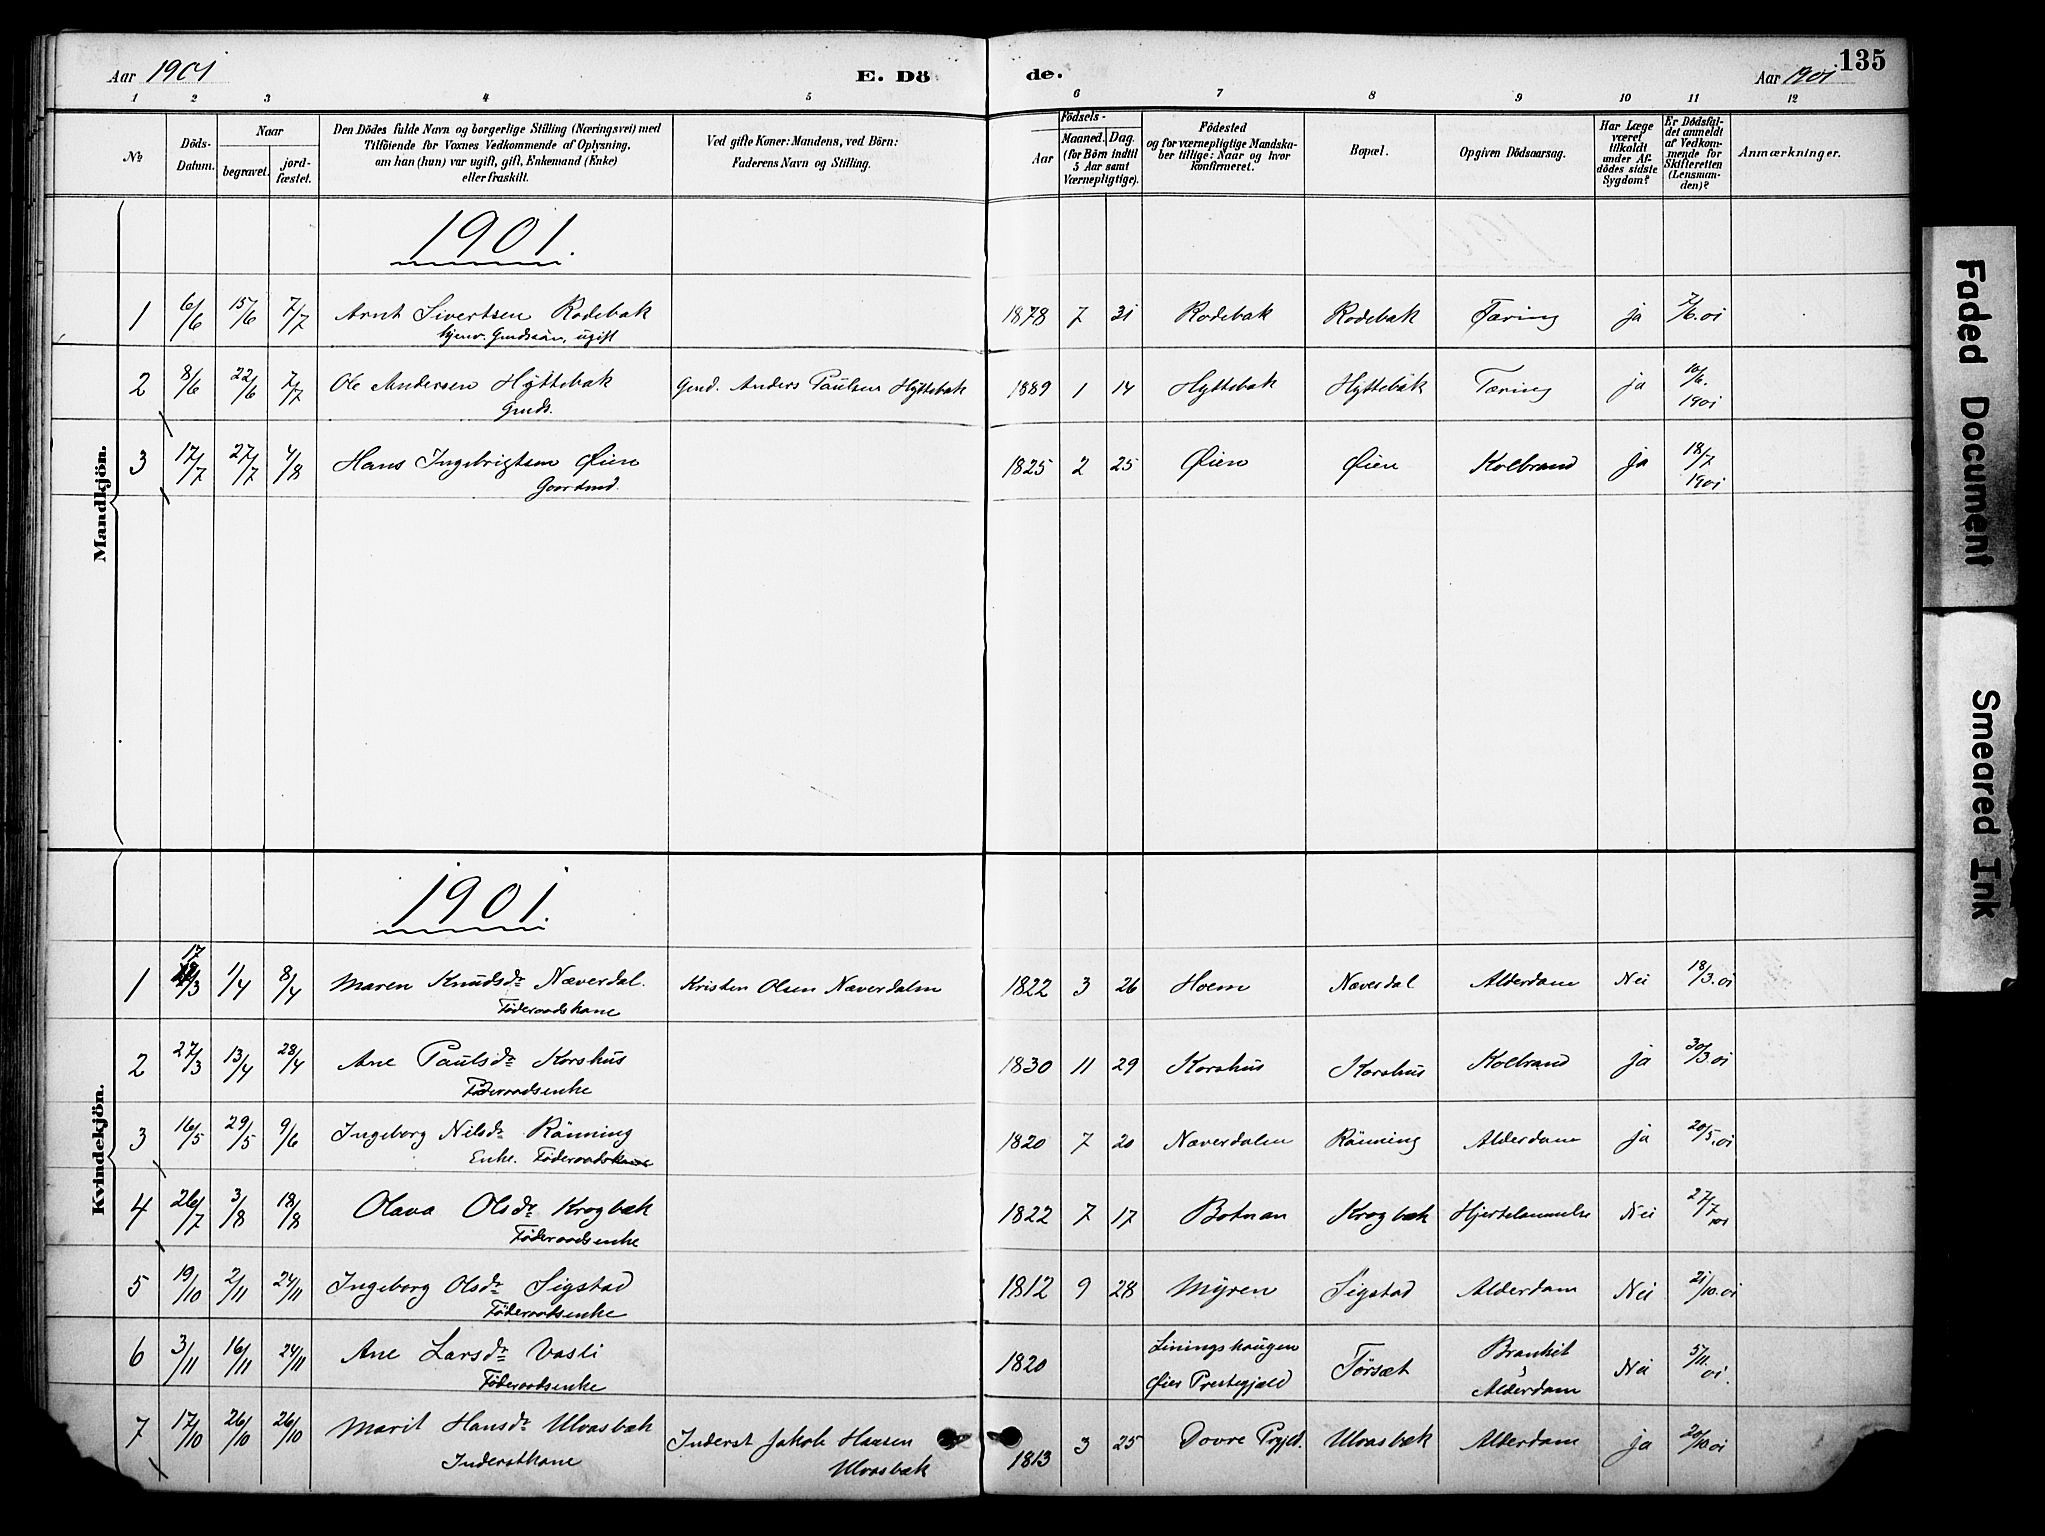 135
Aar 1901 E. Dö de. Aar 1901
1 2 3 4 5 6 7 8 9 10 11 12
№
Döds-
Datum.
Naar
begravet.
jord-
fæstet.
Den Dödes fulde Navn og borgerlige Stilling (Næringsvei) med
Tilföiende for Voxnes Vedkommende af Oplysning,
om han (hun) var ugift, gift, Enkemand (Enke)
eller fraskilt.
Ved gifte Koner: Mandens, ved Börn:
Faderens Navn og Stilling.
Födsels-
Aar
Maaned.
Dag.
(for Börn indtil
5 Aar samt
Værnepligtige).
Födested
og for værnepligtige Mandska-
ber tillige: Naar og hvor
konfirmeret.
Bopæl.
Opgiven Dödsaarsag.
Har Læge
været
tilkaldt
under Af-
dödes sidste
Sygdom?
Er Dödsfal-
det anmeldt
af Vedkom-
mende for
Skifteretten
(Lensman-
den)?
Anmærkninger.
Mandkjön.
1901.
1 6/6 15/6 7/7 Arnt Sivertsen Rodebak 1878 7 31 Rodebak Rodebak Tæring ja 7/6.01
Gmdssön, ugift
2 8/6 22/6 7/7 Ole Andersen Hyttebak Gmd. Anders Paulsen Hyttebak 1889 1 14 Hyttebak Hyttebak Tæring ja 10/6.
Gmds. 1901
3 17/7 27/7 4/8 Hans Ingebrigtsen Øien 1825 2 25 Øien Øien Kolbrand ja 18/7
Gaardmd. 1901
Kvindekjön.
1901.
1 17/3 1/4 8/4 Maren Knudsdr Næverdal. Kristen Olsen Næverdalen 1822 3 26 Hoem Næverdal Alderdom Nei 18/3.01
Föderaadskone
2 27/3 13/4 28/4 Ane Paulsdr Korshus 1830 11 29 Korshus Korshus Kolbrand ja 30/3.01
Föderaadsenke
3 16/5 29/5 9/6 Ingeborg Nilsdr Rönning 1820 7 20 Næverdalen Rönning Alderdom ja 20/5.01
Enke. Föderaadskone
4 26/7 3/8 18/8 Olava Olsdr Krogbæk 1822 7 17 Botnan Krogbæk Hjertelammelse Nei 27/7
Föderaadsenke 01
5 19/10 2/11 24/11 Ingeborg Olsdr Sigstad 1812 9 28 Myren Sigstad Alderdom Nei 21/10.01
Föderaadsenke
6 3/11 16/11 24/11 Ane Larsdr Vasli 1820 Liningshaugen Törsæt Bronkit Nei 5/11.
Föderaadsenke Øier Prestegjæld Alderdom 01.
7 17/10 26/10 26/10 Marit Hansdr Ulvasbæk Inderst Jakob Hansen 1813 3 25 Dovre Prgjd. Ulvasbæk Alderdom ja 20/10 01
Inderstkone Ulvasbæk
Faded Document
Smeared Ink